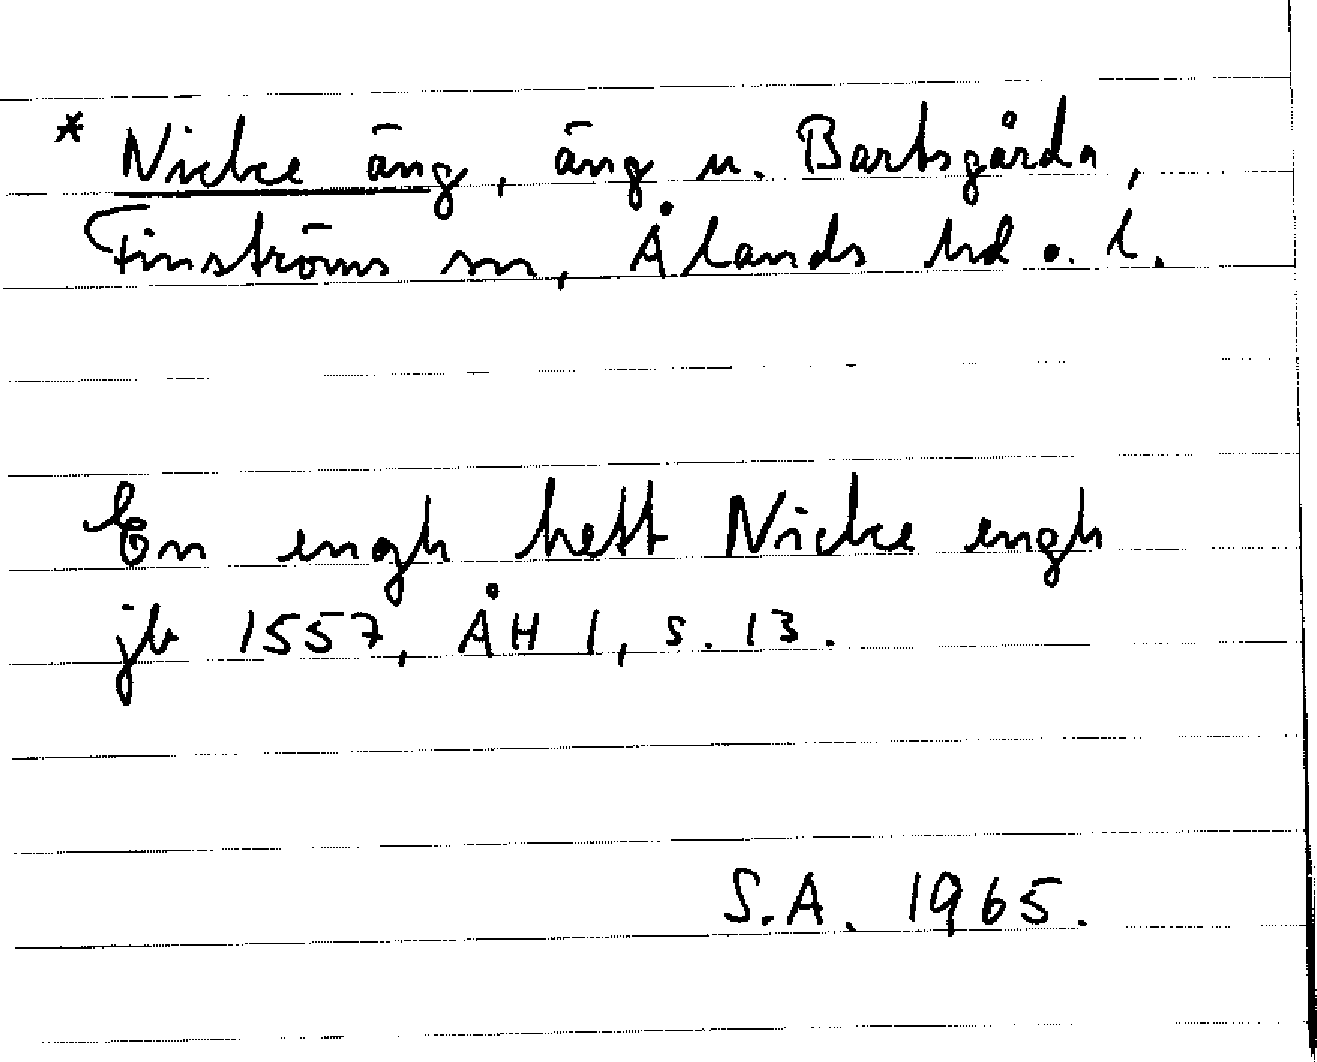 * Nicke äng, äng u. Bartsgårda,
Finströms sn, Ålands hd o. l.
En engh hett Nicke engh
jb 1557, ÅH 1, s. 13.
S.A. 1965.